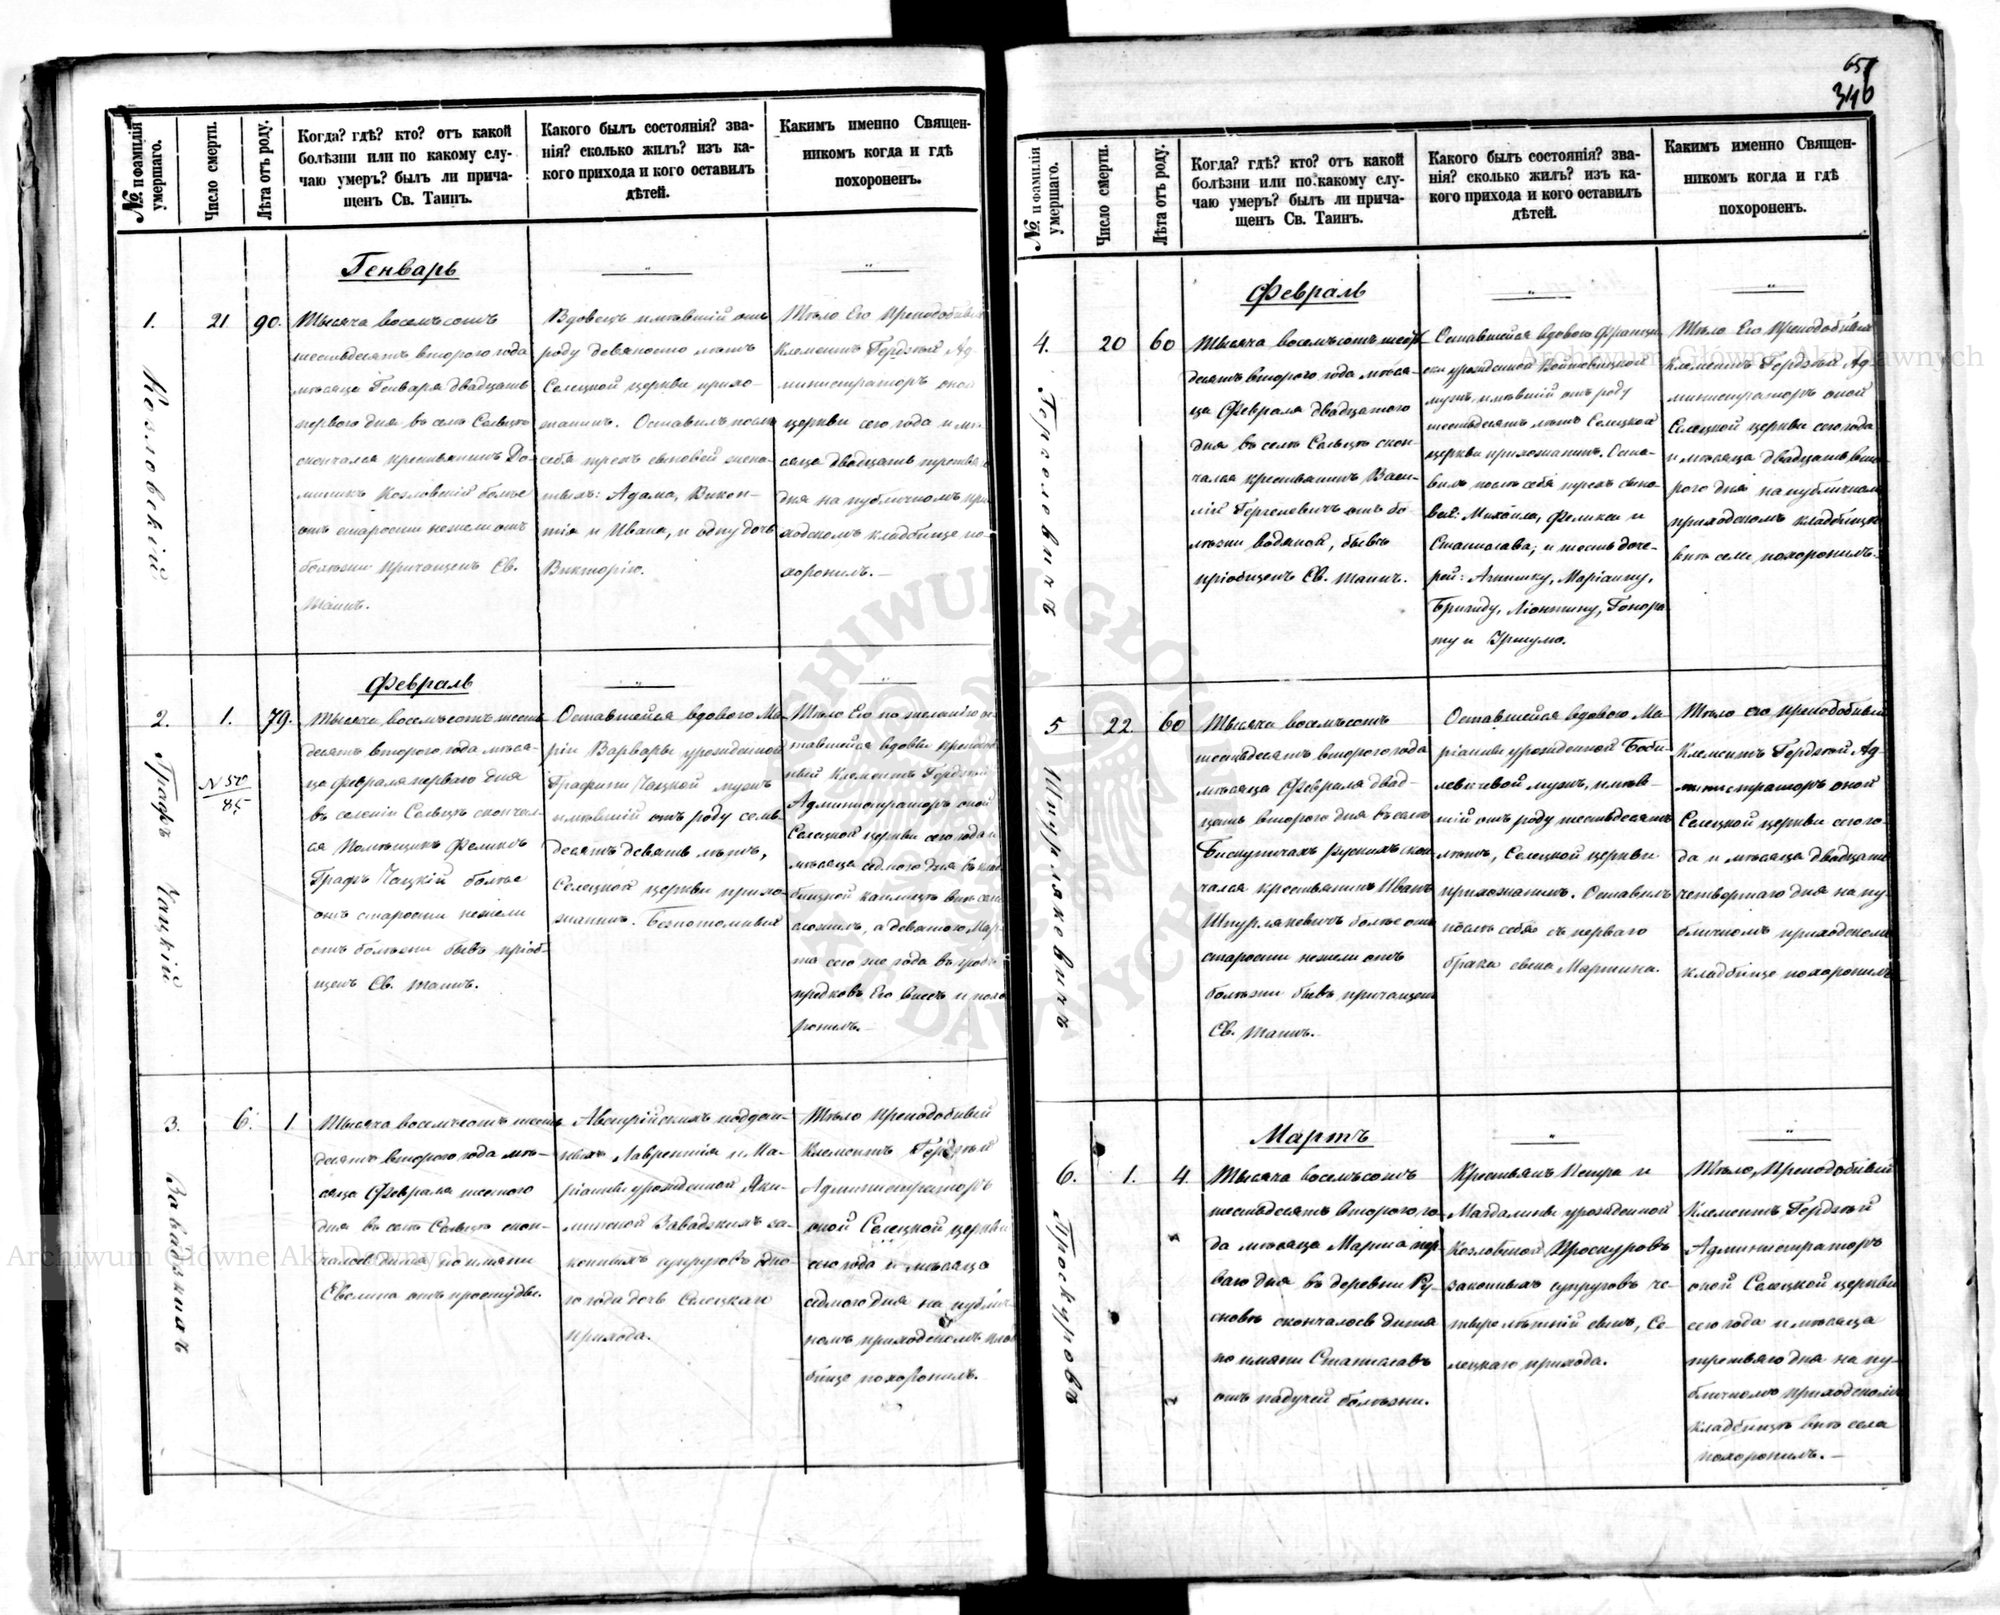 651
346
№ и фамилія умершаго.
Число смерти.
Лѣта отъ роду.
Когда? гдѣ? кто? отъ какой
болѣзни или по какому слу-
чаю умеръ? былъ ли прича-
щенъ Св. Таинъ.
Какого былъ состоянія? зва-
нія? сколько жилъ? изъ ка-
кого прихода и кого оставилъ
дѣтей.
Какимъ именно Священ-
никомъ когда и гдѣ
похороненъ.
Генварь
1.
Козловскій
21
90.
Тысяча восемьсотъ
шестьдесятъ втораго года
мѣсяца Генваря двадцать
перваго дня въ селѣ Сельцѣ
скончался крестьянинъ До-
миникъ Козловскій болѣе
отъ старости нежели отъ
болѣзни причащенъ Св.
Таинъ.
Вдовецъ имѣвшій отъ
роду девяносто лѣтъ
Селецкой церкви прихо-
жанинъ. Оставилъ послѣ
себя трехъ сыновей жена-
тыхъ: Адама, Викен-
тія и Ивана, и одну дочь
Викторію.
Тѣло Его Преподобный
Климентъ Гердзѣй Ад-
министраторъ оной
церкви сего года и мѣ-
сяца двадцать третьяго
дня на публичномъ при-
ходскомъ кладбище по-
хоронилъ.
Февраль
2.
Графъ Чацкій
1.
N 57
85
79.
Тысяча восемьсотъ шесть-
десятъ втораго года мѣся-
ца Февраля перваго дня
въ селеніи Сельцѣ скончал-
ся Помѣщикъ Феликсъ
Графъ Чацкій болѣе
отъ старости нежели
отъ болѣзни бывъ пріоб-
щенъ Св. таинъ.
Оставшейся вдовою Ма-
ріи Варвары урожденной
Графини Чацкой мужъ
имѣвшій отъ роду семь-
десятъ девять лѣтъ,
Селецкой церкви прихо-
жанинъ. Безпотомный
Тѣло Его по желанію ос-
тавшейся вдовы преподоб-
ный Климентъ Гердзѣй
Администраторъ оной
Селецкой церкви сего года и
мѣсяца седмого дня въ клад-
бищной каплицѣ внѣ села
сложилъ, а девятого Мар-
та сего же года въ гробѣ
предковъ Его внесъ и похо-
ронилъ.
3.
Завадзкихъ
6.
1
Тысяча восемьсотъ шесть-
десятъ втораго года мѣ-
сяца Февраля шестого
дня въ селѣ Сельцѣ скон-
чалось дитя по имяни
Евелина отъ простуды.
Австрійскихъ поддан-
ныхъ Лаврентія и Ма-
ріанны урожденной Яки-
минской Завадзкихъ за-
конныхъ супруговъ одно-
го года дочь Селецкаго
прихода.
Тѣло Преподобный
Климентъ Гердзѣй
Администраторъ
оной Селецкой церкви
сего года и мѣсяца
седмого дня на публич-
номъ приходскомъ клад-
бище похоронилъ.
№ и фамилія умершаго.
Число смерти.
Лѣта отъ роду.
Когда? гдѣ? кто? отъ какой
болѣзни или по какому слу-
чаю умеръ? былъ ли прича-
щенъ Св. Таинъ.
Какого былъ состоянія? зва-
нія? сколько жилъ? изъ ка-
кого прихода и кого оставилъ
дѣтей.
Какимъ именно Священ-
никомъ когда и гдѣ
похороненъ.
Февраль
4.
Гергелевичъ
20
60
Тысяча восемьсотъ шесть-
десятъ втораго года мѣся-
ца Февраля двадцатого
дня въ селѣ Сельцѣ скон-
чался крестьянинъ Васи-
лій Гергелевичъ отъ бо-
лѣзни водяной, бывъ
пріобщенъ Св. таинъ.
Оставшейся вдовою Францис-
ки урожденной Войткевицкой
мужъ имѣвшій отъ роду
шестьдесятъ лѣтъ Селецкой
церкви прихожанинъ. Оста-
вилъ послѣ себя трехъ сыно-
вей: Михаила, Феликса и
Станислава; и шесть доче-
рей: Агнишку, Маріанну,
Бригиду, Ліонтину, Гонора-
ту и Уршулю.
Тѣло Его Преподобный
Климентъ Гердзѣй Ад-
министраторъ оной
Селецкой церкви сего года
и мѣсяца двадцать вто-
рого дня на публичномъ
приходскомъ кладбищѣ
внѣ села похоронилъ.
5
Шпурлякевичъ
22
60
Тысяча восемьсотъ
шестьдесятъ втораго года
мѣсяца Февраля двад-
цать втораго дня въ селѣ
Бискупичахъ Рускихъ скон-
чался крестьянинъ Иванъ
Шпурлякевичъ болѣе отъ
старости нежели отъ
болѣзни бывъ причащенъ
Св. таинъ.
Оставшейся вдовою Ма-
ріанны урожденной Боби-
левичевой мужъ, имѣв-
шій отъ роду шестьдесятъ
лѣтъ, Селецкой церкви
прихожанинъ. Оставилъ
послѣ себя съ перваго
брака сына Мартина.
Тѣло его преподобный
Климентъ Гердзѣй Ад-
министраторъ оной
Селецкой церкви сего го-
да и мѣсяца двадцать
четвертаго дня на пу-
бличномъ приходскомъ
кладбище похоронилъ
Мартъ
6.
Проскуровъ
1.
4.
Тысяча восемьсотъ
шестьдесятъ втораго го-
да мѣсяца Марта пер-
ваго дня въ деревни Ру-
сновѣ скончалось дитя
по имяни Станиславъ
отъ падучей болѣзни.
Крестьянъ Петра и
Магдалины урожденной
Козловской Проскуровъ
законныхъ супруговъ че-
тырелѣтній сынъ, Се-
лецкаго прихода.
Тѣло Преподобный
Климентъ Гердзѣй
Администраторъ
оной Селецкой церкви
сего года и мѣсяца
третьяго дня на пу-
бличномъ приходскомъ
кладбищѣ внѣ села
похоронилъ.
Archiwum Główne Akt Dawnych
Archiwum Główne Akt Dawnych
ARCHIWUM GŁÓWNE AKT DAWNYCH